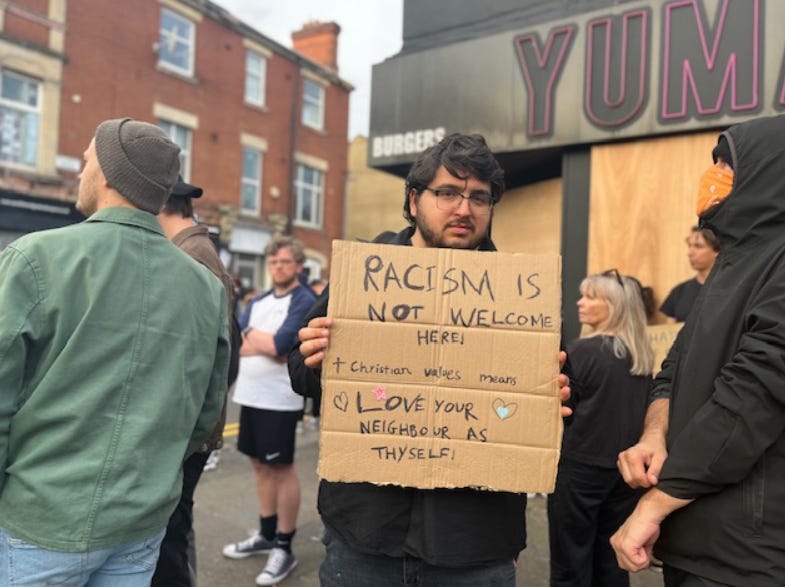 YUM
BURGERS
RACISM IS
NOT WELCOME
HERE!
+ Christian values means
LOVE YOUR
NEIGHBOUR AS
THYSELF!